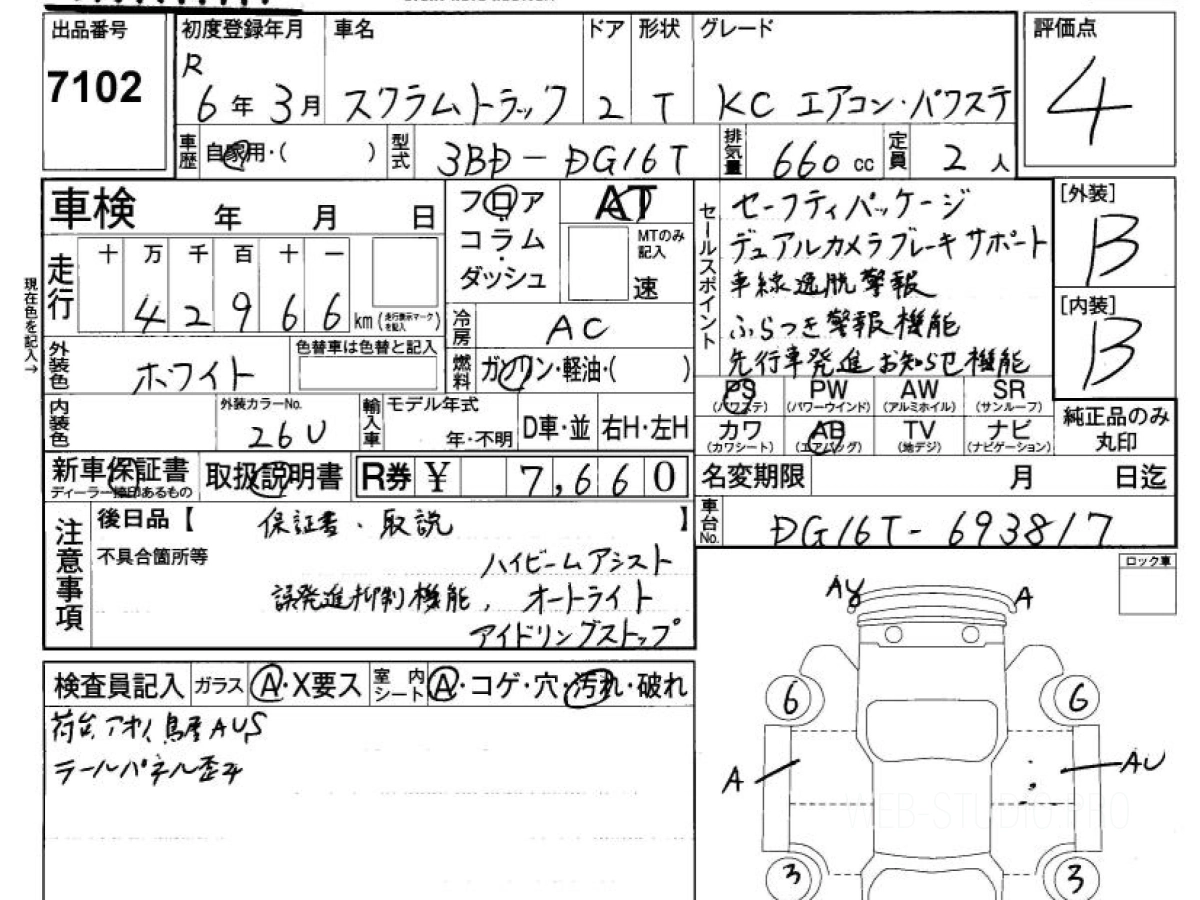 出品番号 初度登録年月 車名 ドア 形状 グレード 評価点
7102 R 6年 3月 スクラムトラック 2 T KC エアコン・パワステ 4
車歴 自家用・( ) 型式 3BD-DG16T 排気量 660 cc 定員 2 人
車検 年 月 日
フロア
コラム
ダッシュ
AT
MTのみ記入
速
セールスポイント
セーフティパッケージ
デュアルカメラブレーキサポート
車線逸脱警報
ふらつき警報機能
先行車発進お知らせ機能
[外装]
B
[内装]
B
現在色を記入→
走行 十 万 千 百 十 一
4 2 9 6 6 km (走行表示マークを記入)
冷房 AC
外装色 ホワイト 色替車は色替と記入
燃料 ガソリン・軽油・( )
PS (パワステ) PW (パワーウインド) AW (アルミホイル) SR (サンルーフ)
カワ (カワシート) AB (エアバッグ) TV (地デジ) ナビ (ナビゲーション)
純正品のみ
丸印
内装色 外装カラーNo. 26U 輸入車 モデル年式 年・不明 D車・並 右H・左H
新車保証書 取扱説明書 R券 ¥ 7,660
名変期限 月 日迄
車台No. DG16T-693817
注意事項
後日品【 保証書・取説 】
不具合箇所等
ハイビームアシスト
誤発進抑制機能, オートライト
アイドリングストップ
ロック車
検査員記入 ガラス A・X要ス 室内シート A・コゲ・穴・汚れ・破れ
荷台アオリ AUS
テールパネル歪み
AY A
6 6
A AU
3 3
WEB-STUDIO.PRO